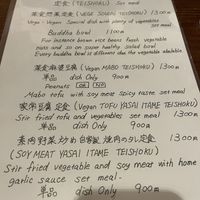 定食 (TEISHOKU) Set meal
菜食野菜定食 (VEGE YASAI TEISHOKU) 1300円
Vege - Vegan Special dish with plenty of vegetables set meal
Buddha bowl 1100円
For instance brown rice beans fresh vegetable
nuts and so on super healthy salad bowl
Every buddha bowl is different due the vegetable available
菜食麻婆豆腐 (Vegan MABO TEISHOKU) 1300円
単品 dish Only 900円
Peanuts OK NO
Mabo tofu with soy meat spicy taste set meal
家常豆腐定食 (Vegan TOFU YASAI ITAME TEISHOKU)
Stir fried tofu and vegetables set meal 1300円
単品 dish Only 900円
素肉野菜炒め 自家製 焼肉のタレ定食 1300円
(SOY MEAT YASAI ITAME TEISHOKU)
Stir fried vegetable and soy meat with home
garlic sauce set meal.
単品 dish Only 900円